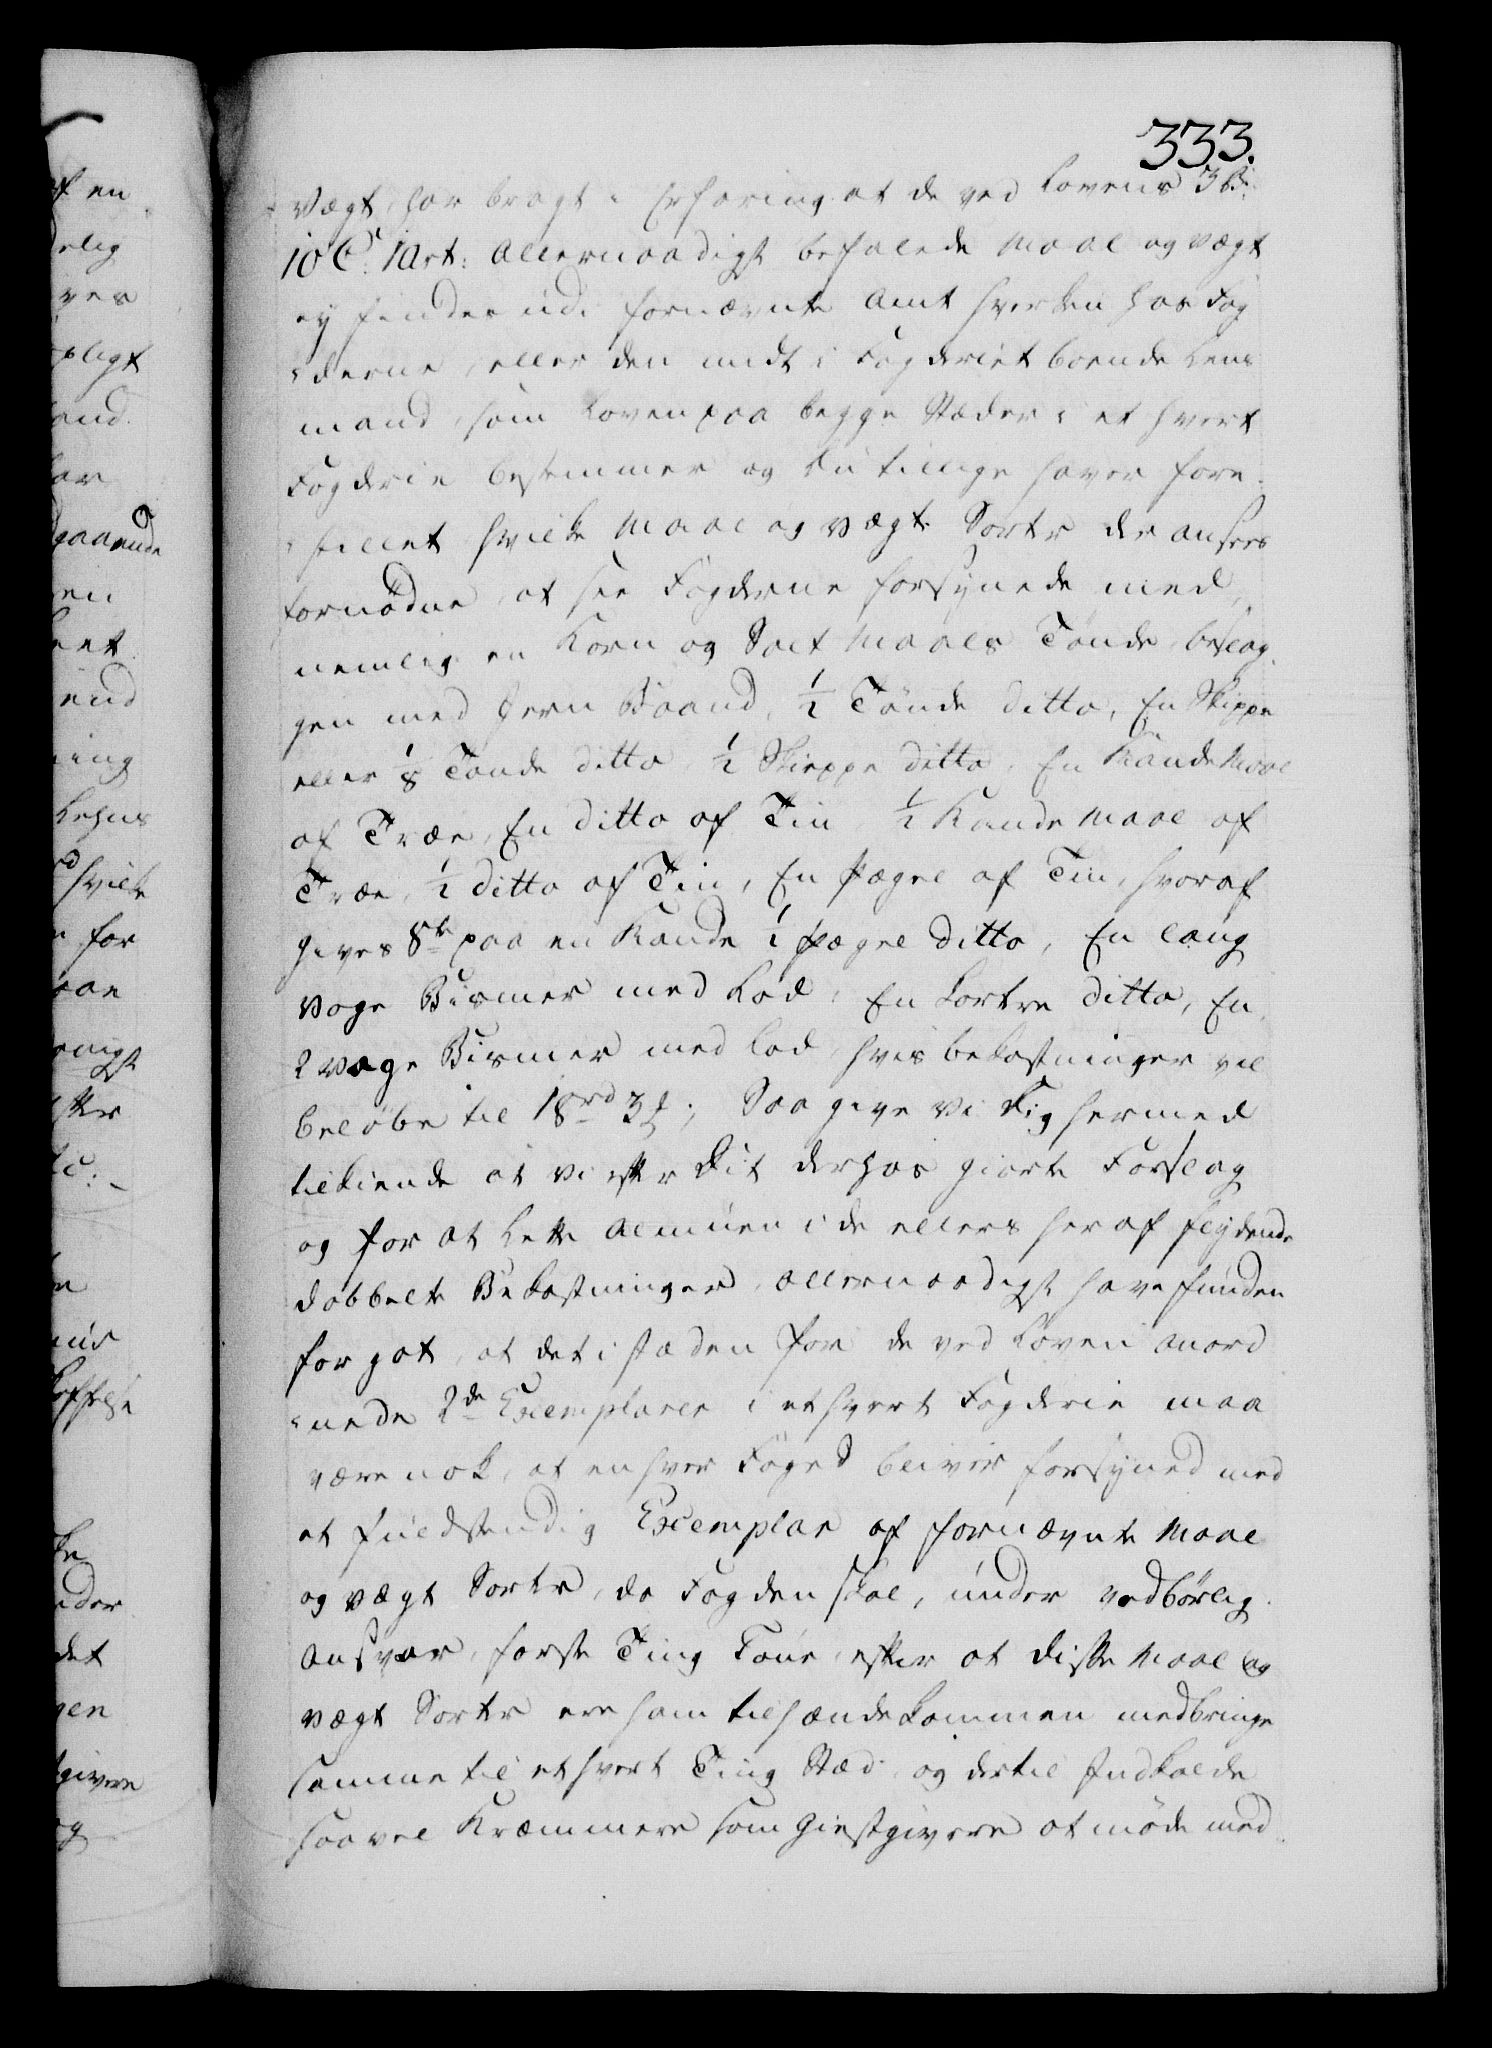 333.
Vægt, har bragt i Erfaring at de ved Lovens 3 B:
10 C: 1 Art: allernaadigst befalede Maal og Vægt
ey findes udi fornævnte Amt hverken hos Fog
-derne, eller den midt i Fogderiet boende Lens
mand, som Loven paa begge Stæder i et hvert
Fogderie bestemmer og Du tillige haver fore
-stillet hvilke Maal og Vægt Sorter der ansees
fornödne, at see Fogderne forsynede med,
nemlig en Korn og Salt Maals Tönde, beslag
gen med Jern Baand, ½ Tönde ditto, En Skippe
eller ⅛ Tönde ditto, ½ Skieppe ditto, En Kande Maal
af Træe, En ditto af Tin, ½ Kande Maal af
Træe, ½ ditto af Tin, En Pægel af Tin, hvoraf
gives 8te paa en Kande, ½ Pægel ditto, En lang
Voge Bismer med Lod, En kortre ditto, En
2 Voge Bismer med Lod, hvis bekostninger vil
belöbe til 18 rd 3 ß; Saa give Vi Dig hermed
tilkiende at Vi efter Dit derhos giorte Forslag
og for at Lette Almuen i de ellers heraf flydende
dobbelte Bekostninger, allernaadigst have funden
for got, at det i stæden for de ved Loven anord
-nede 2de Exemplarer i ethvert Fogderie maa
være nok, at enhver Foged bliver forsyned med
et fuldstendig Exemplar af fornævnte Maal
og Vægt Sorter, da Fogden skal, under vedbörlig
Ansvar, förste Ting Tour, efter at disse Maal og
Vægt Sorter ere ham tilhænde kommen medbringe
samme til ethvert Ting Stæd og dertil Indkalde
saavel Kræmmere som Giestgivere at möde med